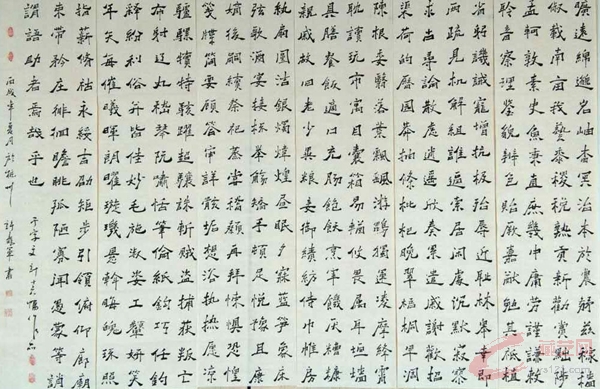 曠遠綿邈岩岫杳冥治本於農務茲稼穡
俶載南畝我藝黍稷稅熟貢新勸賞黜陟
孟軻敦素史魚秉直庶幾中庸勞謙謹敕
聆音察理鑒貌辨色貽厥嘉猷勉其祗植
省躬譏誡寵增抗極殆辱近恥林皋幸即
兩疏見機解組誰逼索居閒處沉默寂寥
求古尋論散慮逍遙欣奏累遣慼謝歡招
渠荷的歷園莽抽條枇杷晚翠梧桐早凋
陳根委翳落葉飄颻游鵾獨運凌摩絳霄
耽讀玩市寓目囊箱易輶攸畏屬耳垣牆
具膳餐飯適口充腸飽飫烹宰飢厭糟糠
親戚故舊老少異糧妾御績紡侍巾帷房
紈扇圓潔銀燭煒煌晝眠夕寐藍筍象床
弦歌酒宴接杯舉觴矯手頓足悅豫且康
嫡後嗣續祭祀蒸嘗稽顙再拜悚懼恐惶
箋牒簡要顧答審詳骸垢想浴執熱願涼
驢騾犢特駭躍超驤誅斬賊盜捕獲叛亡
布射遼丸嵇琴阮嘯恬筆倫紙鈞巧任釣
釋紛利俗並皆佳妙毛施淑姿工顰妍笑
年矢每催曦暉朗曜璇璣懸斡晦魄環照
指薪修祜永綏吉劭矩步引領俯仰廊廟
束帶矜莊徘徊瞻眺孤陋寡聞愚蒙等誚
謂語助者焉哉乎也
千字文
丙戌年夏月於杭州